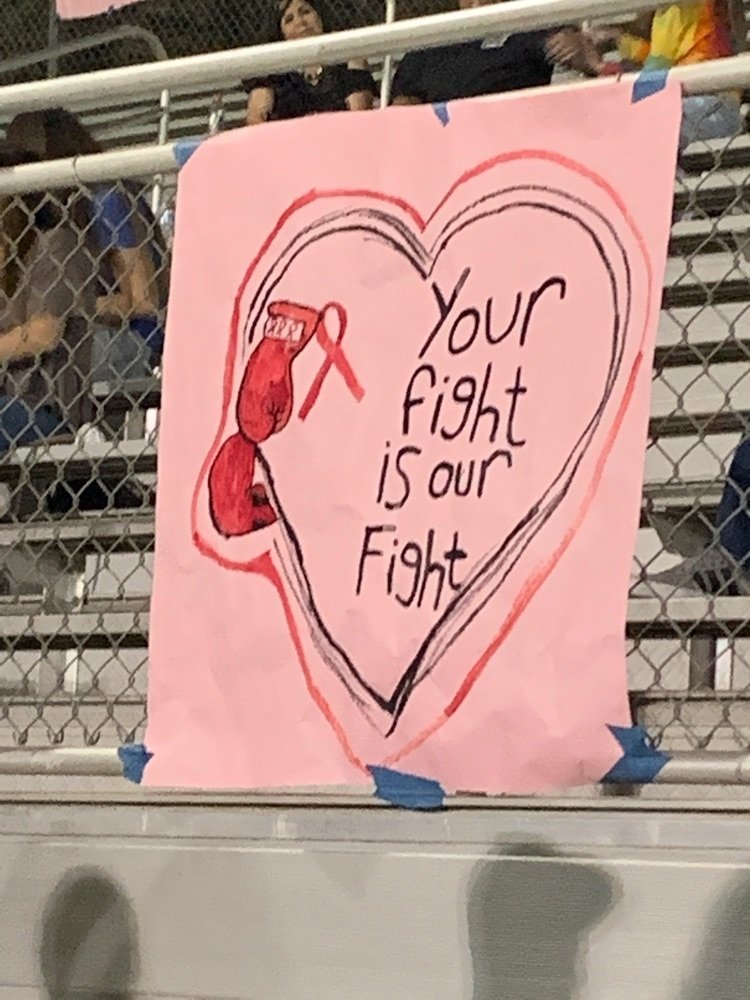 Your
fight
is our
Fight